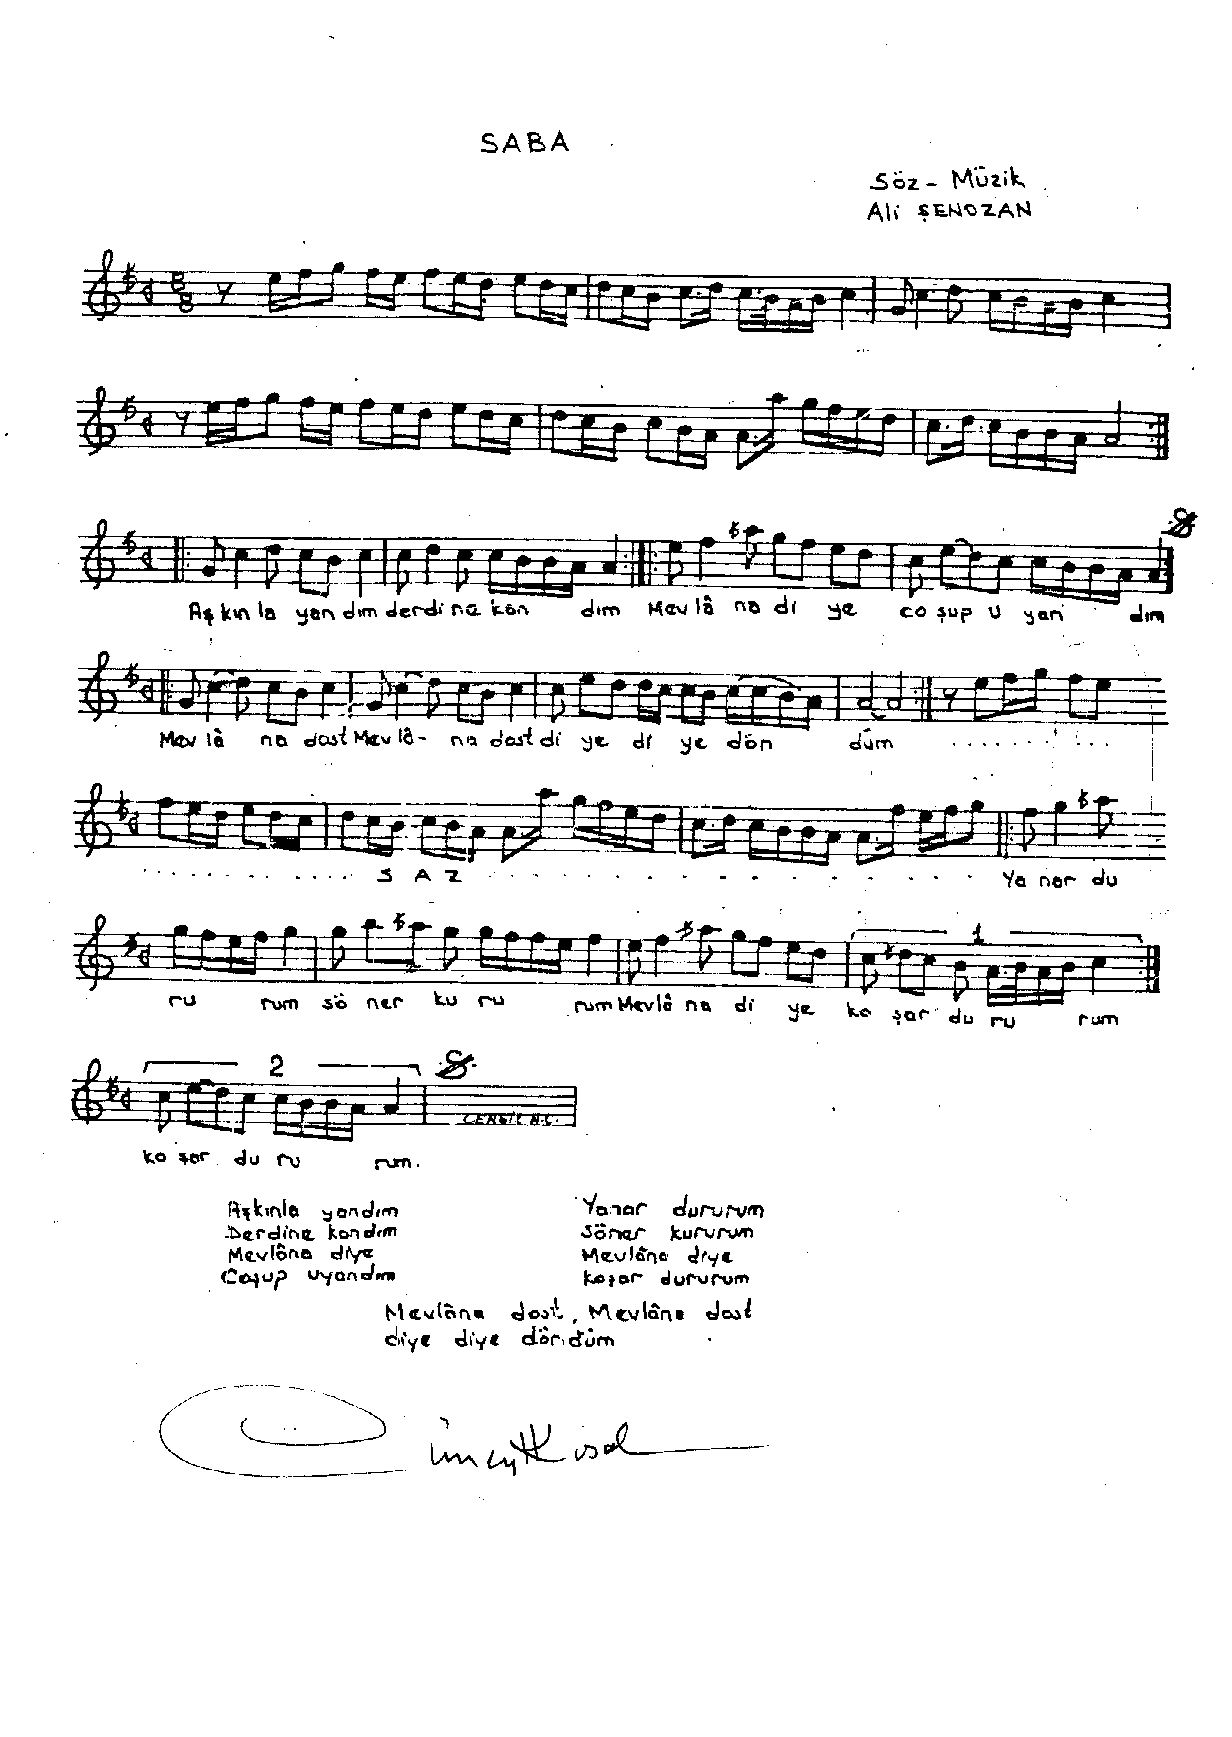 SABA
Söz - Müzik
Ali ŞENOZAN
8 8
Aşkınla yandım derdine kan dım Mevlâ na di ye co şup u yan dım
Mev lâ na dost Mev lâ- na dost di ye di ye dön düm
SAZ Ya nar du
ru rum sö ner ku ru rum Mevlâ na di ye ko şar du ru rum
1
2
ko şar du ru rum.
Aşkınla yandım Yanar dururum
Derdine kandım Söner kururum
Mevlâna diye Mevlâna diye
Coşup uyandım koşar dururum
Mevlâna dost, Mevlâna dost
diye diye döndüm